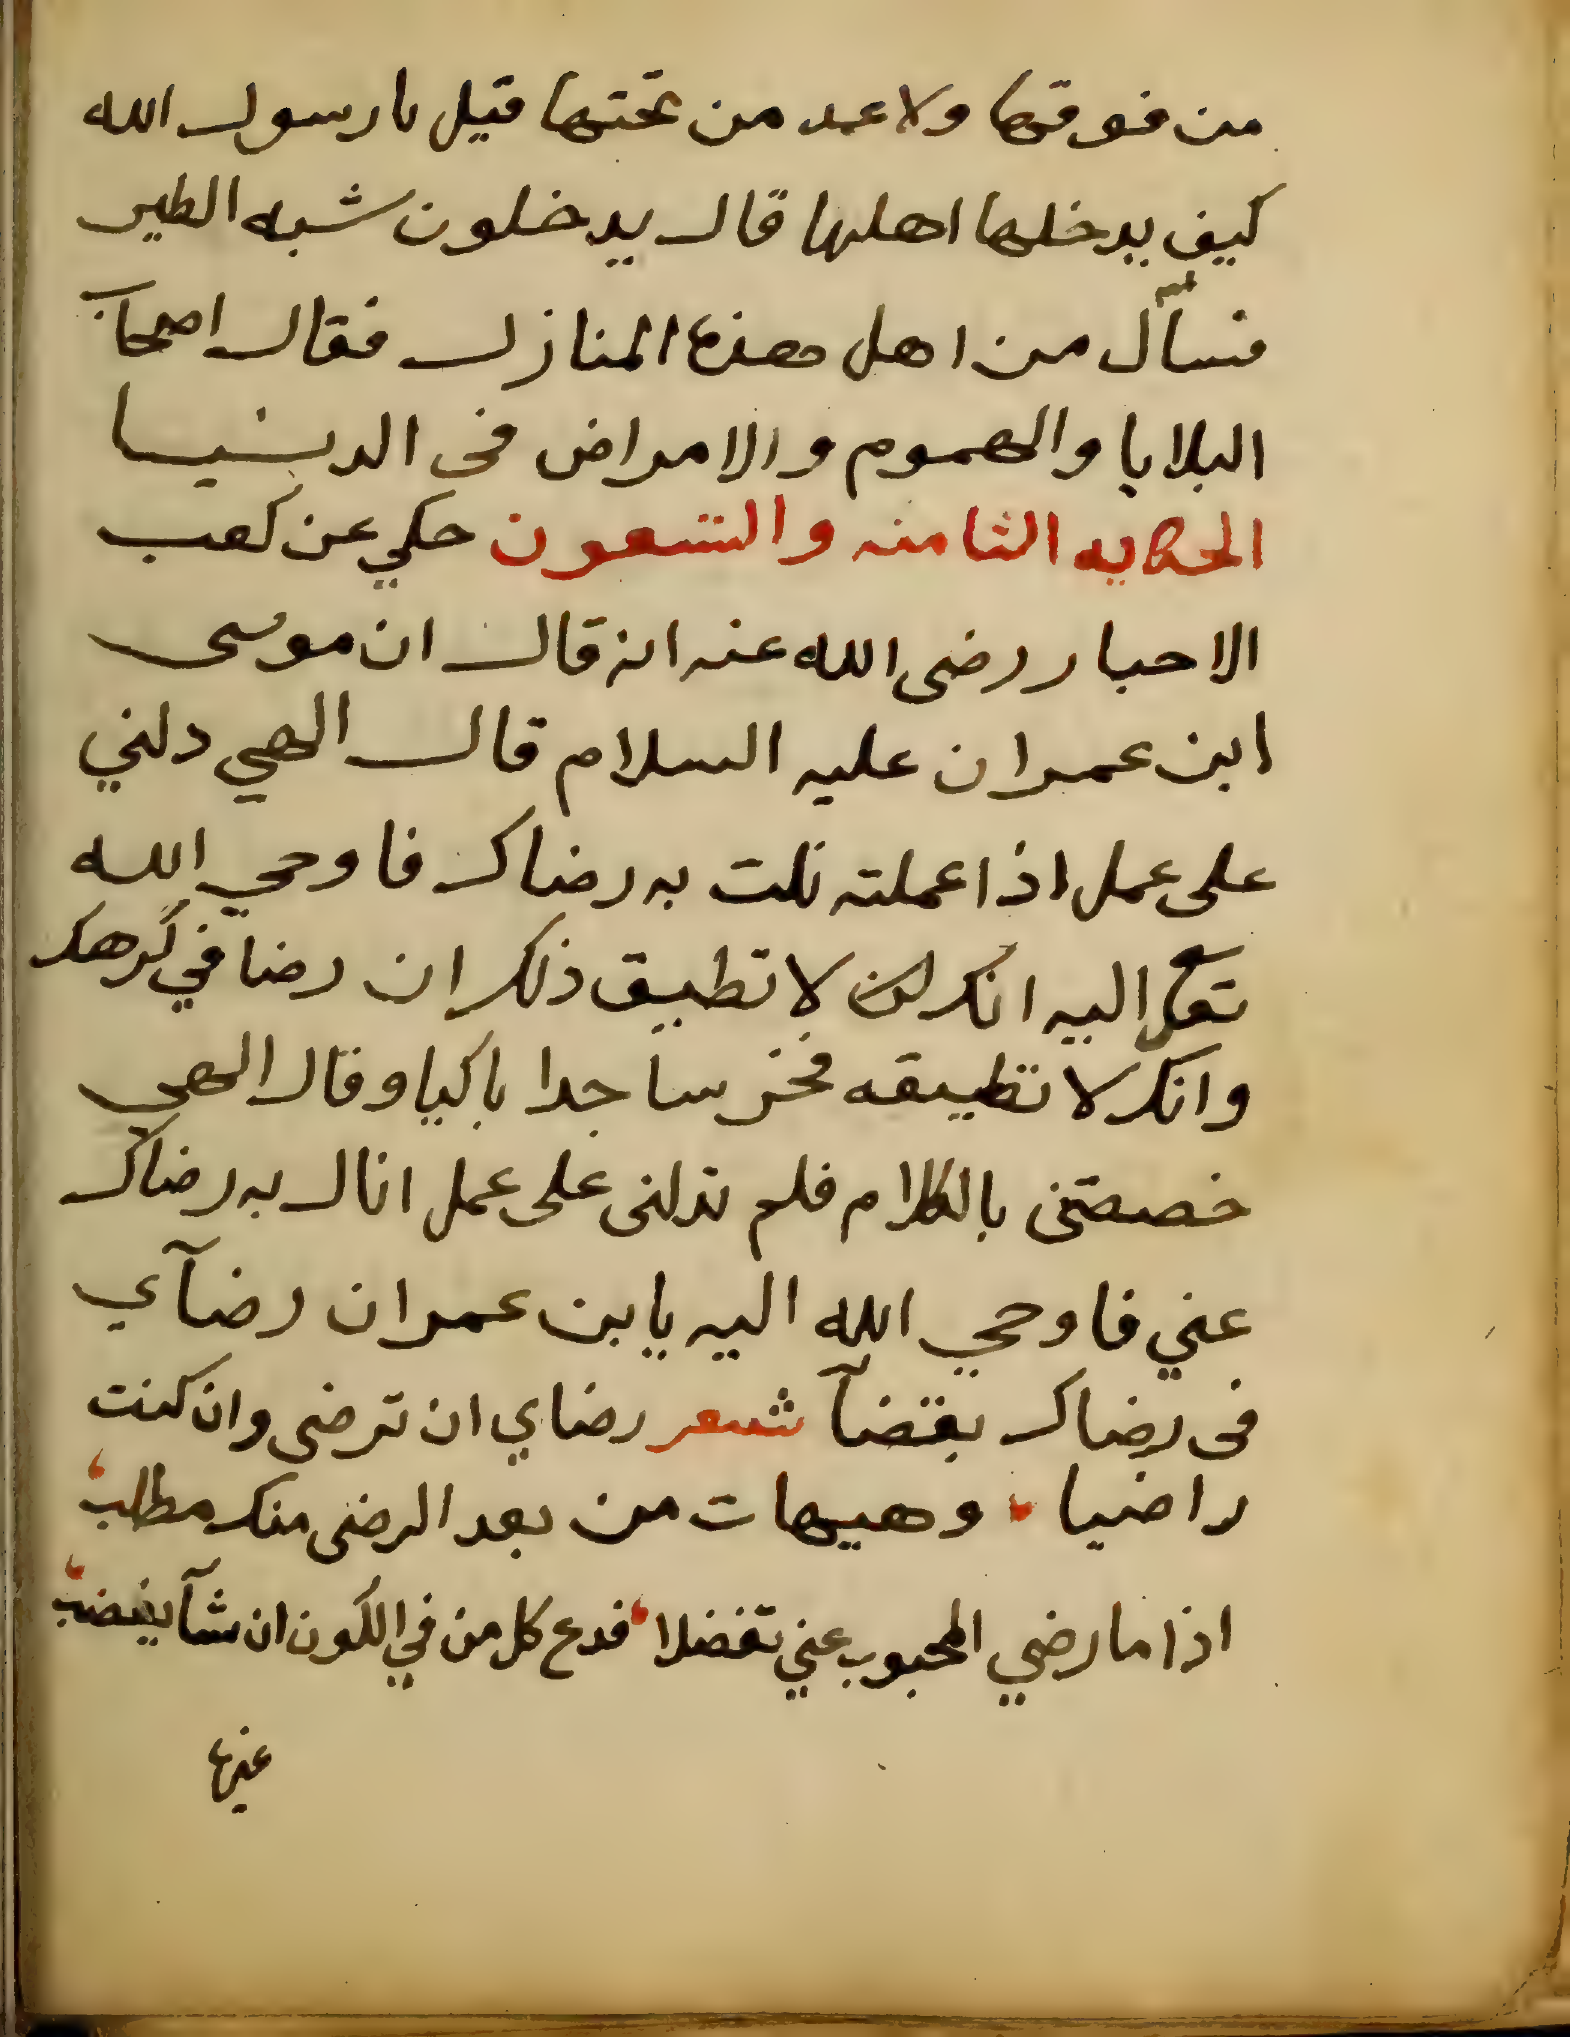 من فوقها ولا عمد من تحتها قيل يا رسول الله
كيف يدخلها اهلها قال يدخلون شبه الطير
فسأل من اهل هذه المنازل فقال اصحاب
البلايا والهموم والامراض فى الدنيا
الحكايه الثامنه والتسعون حكي عن كعب
الاحبار رضى الله عنه انه قال ان موسى
ابن عمران عليه السلام قال الهي دلني
على عمل اذا عملته نلت به رضاك فاوحي الله
تعالى اليه انك لا تطيق ذلك ان رضا في كرهك
وانك لا تطيقه فخر ساجدا باكيا وقال الهي
خصصتنى بالكلام فلم تدلنى على عمل انال به رضاك
عني فاوحي الله اليه يا بن عمران رضآي
فى رضاك بقضآ شعر رضاي ان ترضى وان كنت
راضيا وهيهات من بعد الرضى منك مطلب
اذا ما رضي المحبوب عني تفضلا فدع كل من في الكون ان شآ يغضب
غيرها